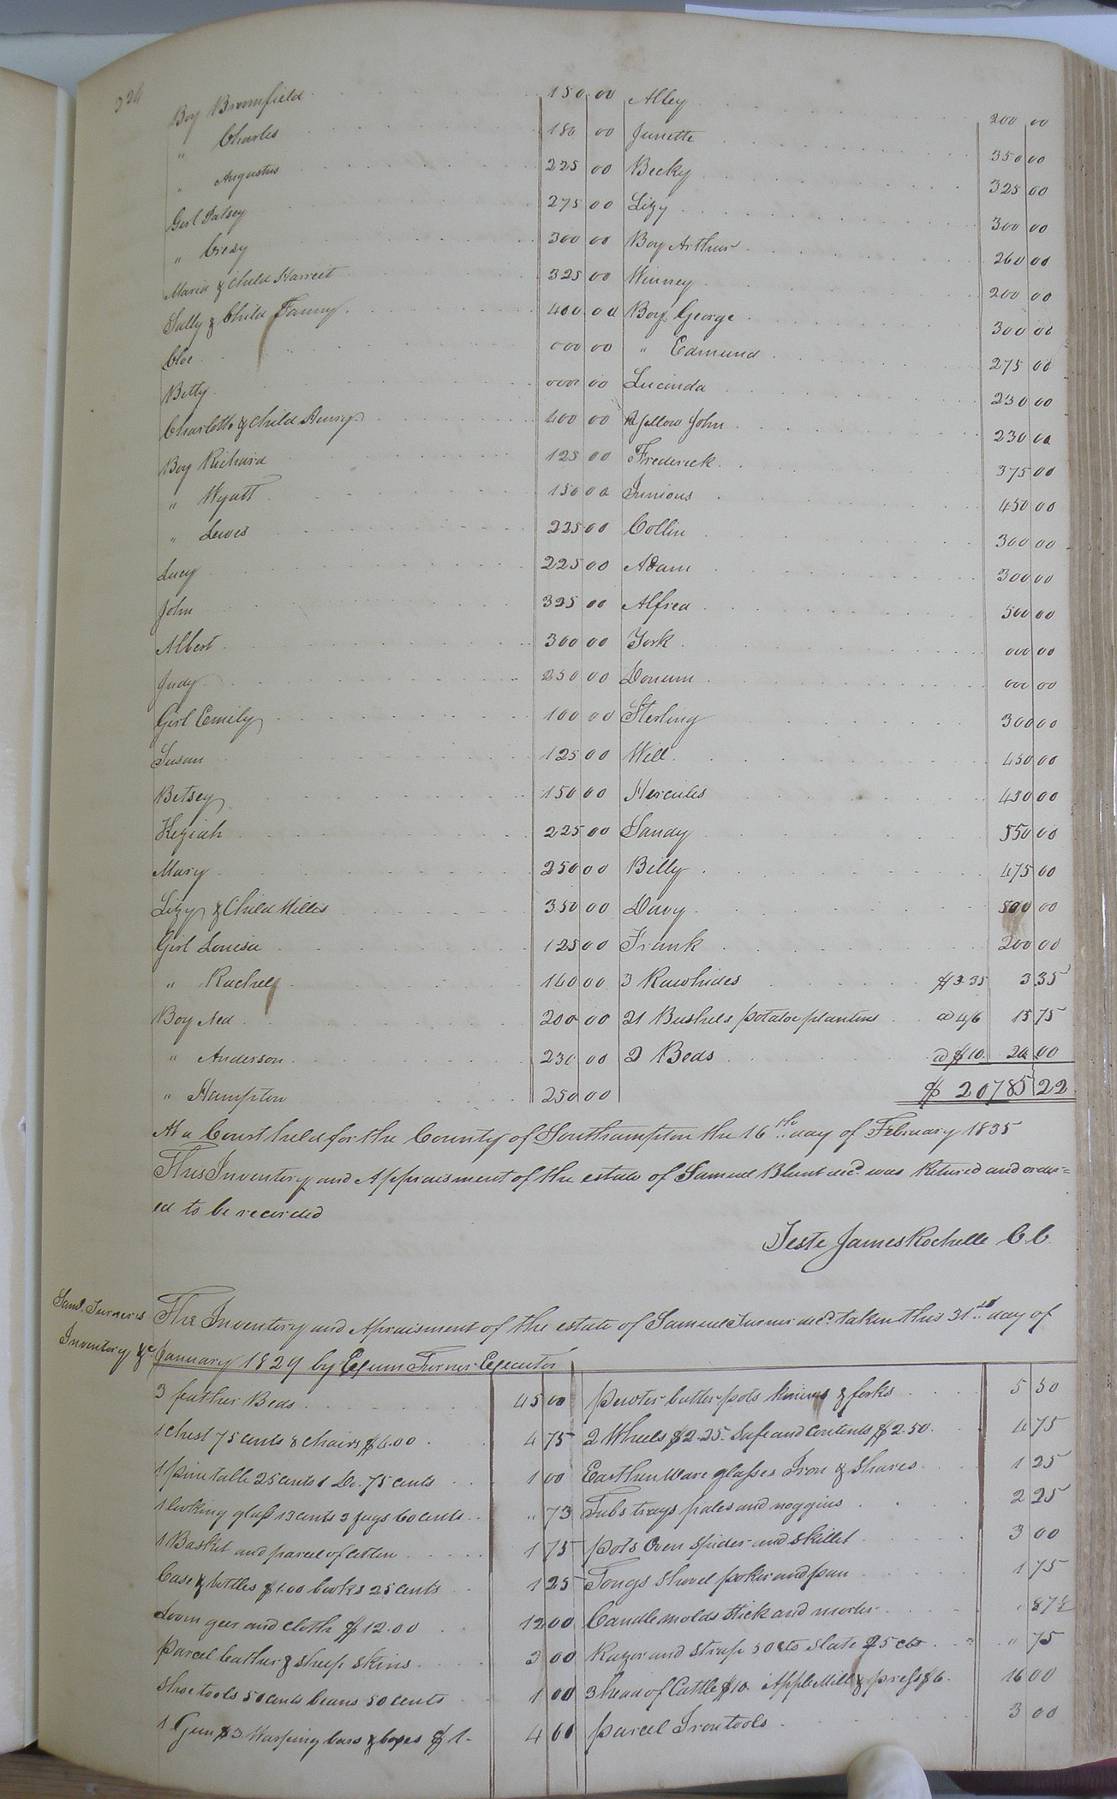 324
Boy Bromfield 150 00 Alley 200 00
" Charles 150 00 Junette 350 00
" Augustus 225 00 Becky 325 00
Girl Patsey 275 00 Lizy 300 00
" Cresy 300 00 Boy Arthur 260 00
Maria & Child Harriet 325 00 Winney 200 00
Sally & Child Fanny 400 00 Boy George 300 00
Cloe 000 00 " Edmund 275 00
Betty 000 00 Lucinda 250 00
Charlotte & Child Henry 400 00 Yellow John 230 00
Boy Richard 125 00 Frederick 375 00
" Wyatt 150 00 Junious 450 00
" Lewis 225 00 Collin 300 00
Lucy 225 00 Adam 300 00
John 325 00 Alfred 500 00
Albert 300 00 York 000 00
Judy 250 00 Donum 000 00
Girl Emily 100 00 Sterling 300 00
Susan 125 00 Will 450 00
Betsey 150 00 Hercules 450 00
Keziah 225 00 Sandy 550 00
Mary 250 00 Billy 475 00
Lizy & Child Willis 350 00 Davy 500 00
Girl Louisa 125 00 Frank 200 00
" Rachel 160 00 3 Rawhides $3.35 3 35
Boy Ned 200 00 21 Bushels potatoe plantins @ 4/6 15 75
" Anderson 230 00 2 Beds @ $10 20 00
" Hampton 250 00 $ 20785 22
At a Court held for the County of Southampton the 16th day of February 1835
This Inventory and Appraisment of the estate of Samuel Blunt decd. was Retured and order=
ed to be recorded
Teste James Rochelle C C
Saml. Turner's Inventory &c
The Inventory and Apraisment of the estate of Samuel Turner decd. taken this 31st day of
January 1829 by Exum Turner Executor
3 feather Beds 45 00 pewter butter pots knives & forks 5 50
1 chest 75 cents 8 chairs $4.00 4 75 2 Wheels $2.25 Safe and Contents $2.50 4 75
1 pine table 25 cents 1 Do. 75 cents 1 00 Earthen Ware glasses Iron & Shares 1 25
1 looking glass 13 cents 3 jugs 60 cents " 73 Tubs trays pales and noggins 2 25
1 Basket and parcel of Cotton 1 75 pots Oven Spider and Skillet 3 00
Case & bottles $1.00 books 25 cents 1 25 Tongs Shovel poker and pan 1 75
Loom geer and cloth $12.00 12 00 Candle molds Stick and morter " 87½
parcel leather & sheep skins 3 00 Razor and Strap 50 cts Slate 25 cts " 75
Shoe tools 50 cents beans 50 cents 1 00 3 head of Cattle $10. Apple Mill & press $6. 16 00
1 Gun $3 Warping bars & boxes $1. 4 00 parcel Iron tools 3 00